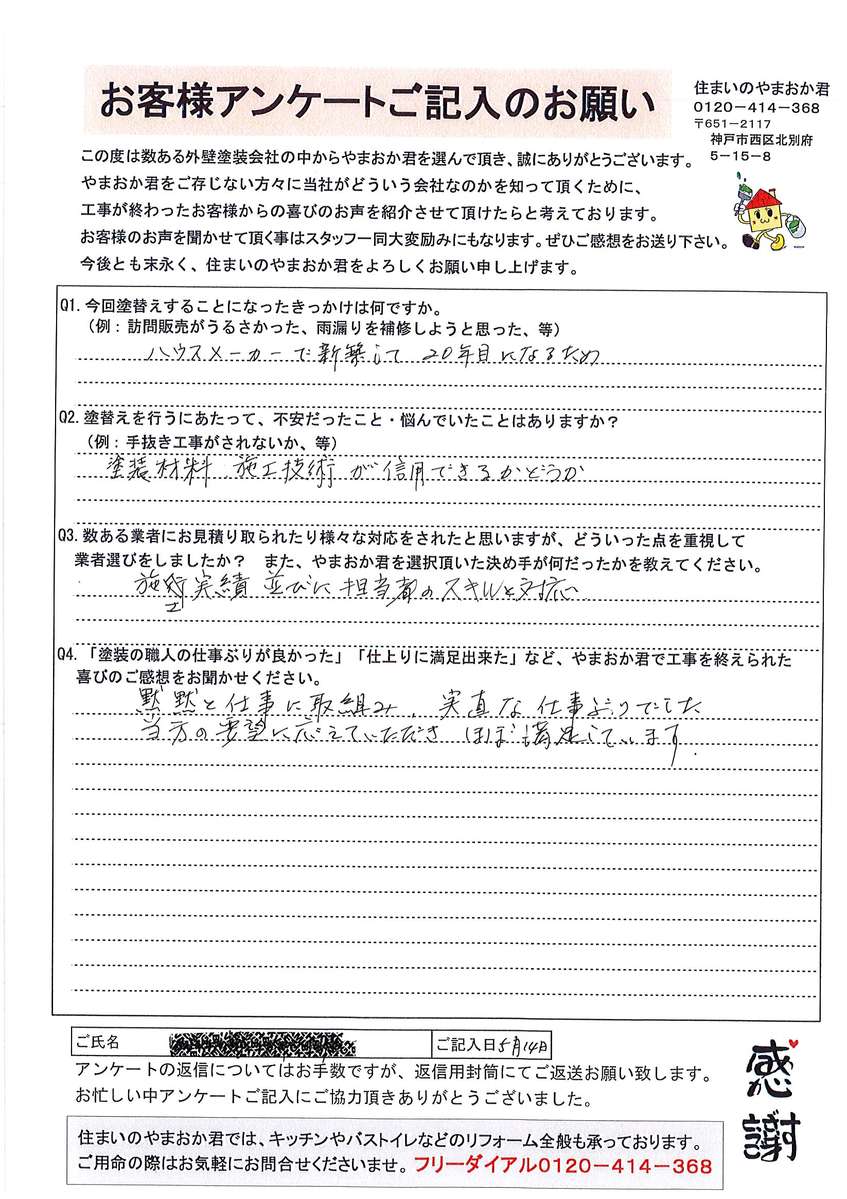 お客様アンケートご記入のお願い
住まいのやまおか君
0120-414-368
〒651-2117
神戸市西区北別府
5-15-8
この度は数ある外壁塗装会社の中からやまおか君を選んで頂き、誠にありがとうございます。
やまおか君をご存じない方々に当社がどういう会社なのかを知って頂くために、
工事が終わったお客様からの喜びのお声を紹介させて頂けたらと考えております。
お客様のお声を聞かせて頂く事はスタッフ一同大変励みにもなります。ぜひご感想をお送り下さい。
今後とも末永く、住まいのやまおか君をよろしくお願い申し上げます。
Q1. 今回塗替えすることになったきっかけは何ですか。
（例：訪問販売がうるさかった、雨漏りを補修しようと思った、等）
ハウスメーカーで新築して 20年目になるため
Q2. 塗替えを行うにあたって、不安だったこと・悩んでいたことはありますか？
（例：手抜き工事がされないか、等）
塗装材料 施工技術 が信用できるかどうか
Q3. 数ある業者にお見積り取られたり様々な対応をされたと思いますが、どういった点を重視して
業者選びをしましたか？ また、やまおか君を選択頂いた決め手が何だったかを教えてください。
施工実績 並びに担当者のスキルと対応
Q4. 「塗装の職人の仕事ぶりが良かった」「仕上りに満足出来た」など、やまおか君で工事を終えられた
喜びのご感想をお聞かせください。
黙黙と仕事に取組み、実直な仕事ぶりでした
当方の要望に応えていただき ほぼ満足しています.
ご氏名
ご記入日 5月14日
アンケートの返信についてはお手数ですが、返信用封筒にてご返送お願い致します。
お忙しい中アンケートご記入にご協力頂きありがとうございました。
感謝
住まいのやまおか君では、キッチンやバストイレなどのリフォーム全般も承っております。
ご用命の際はお気軽にお問合せくださいませ。フリーダイアル0120-414-368